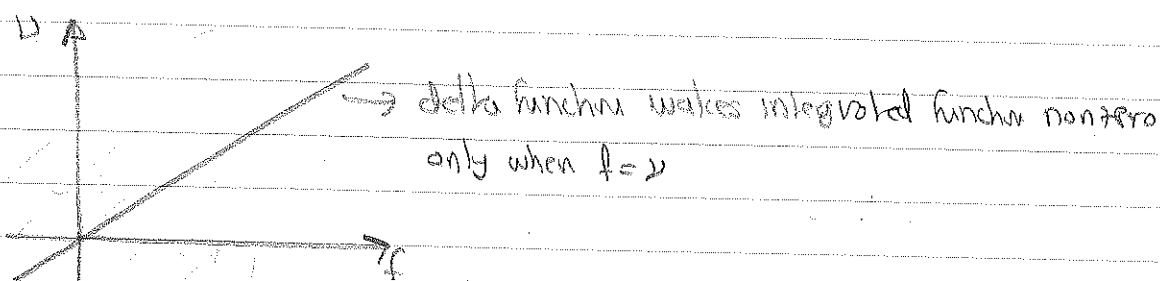 ν
→ delta function makes integrated function nonzero
only when f = ν
f